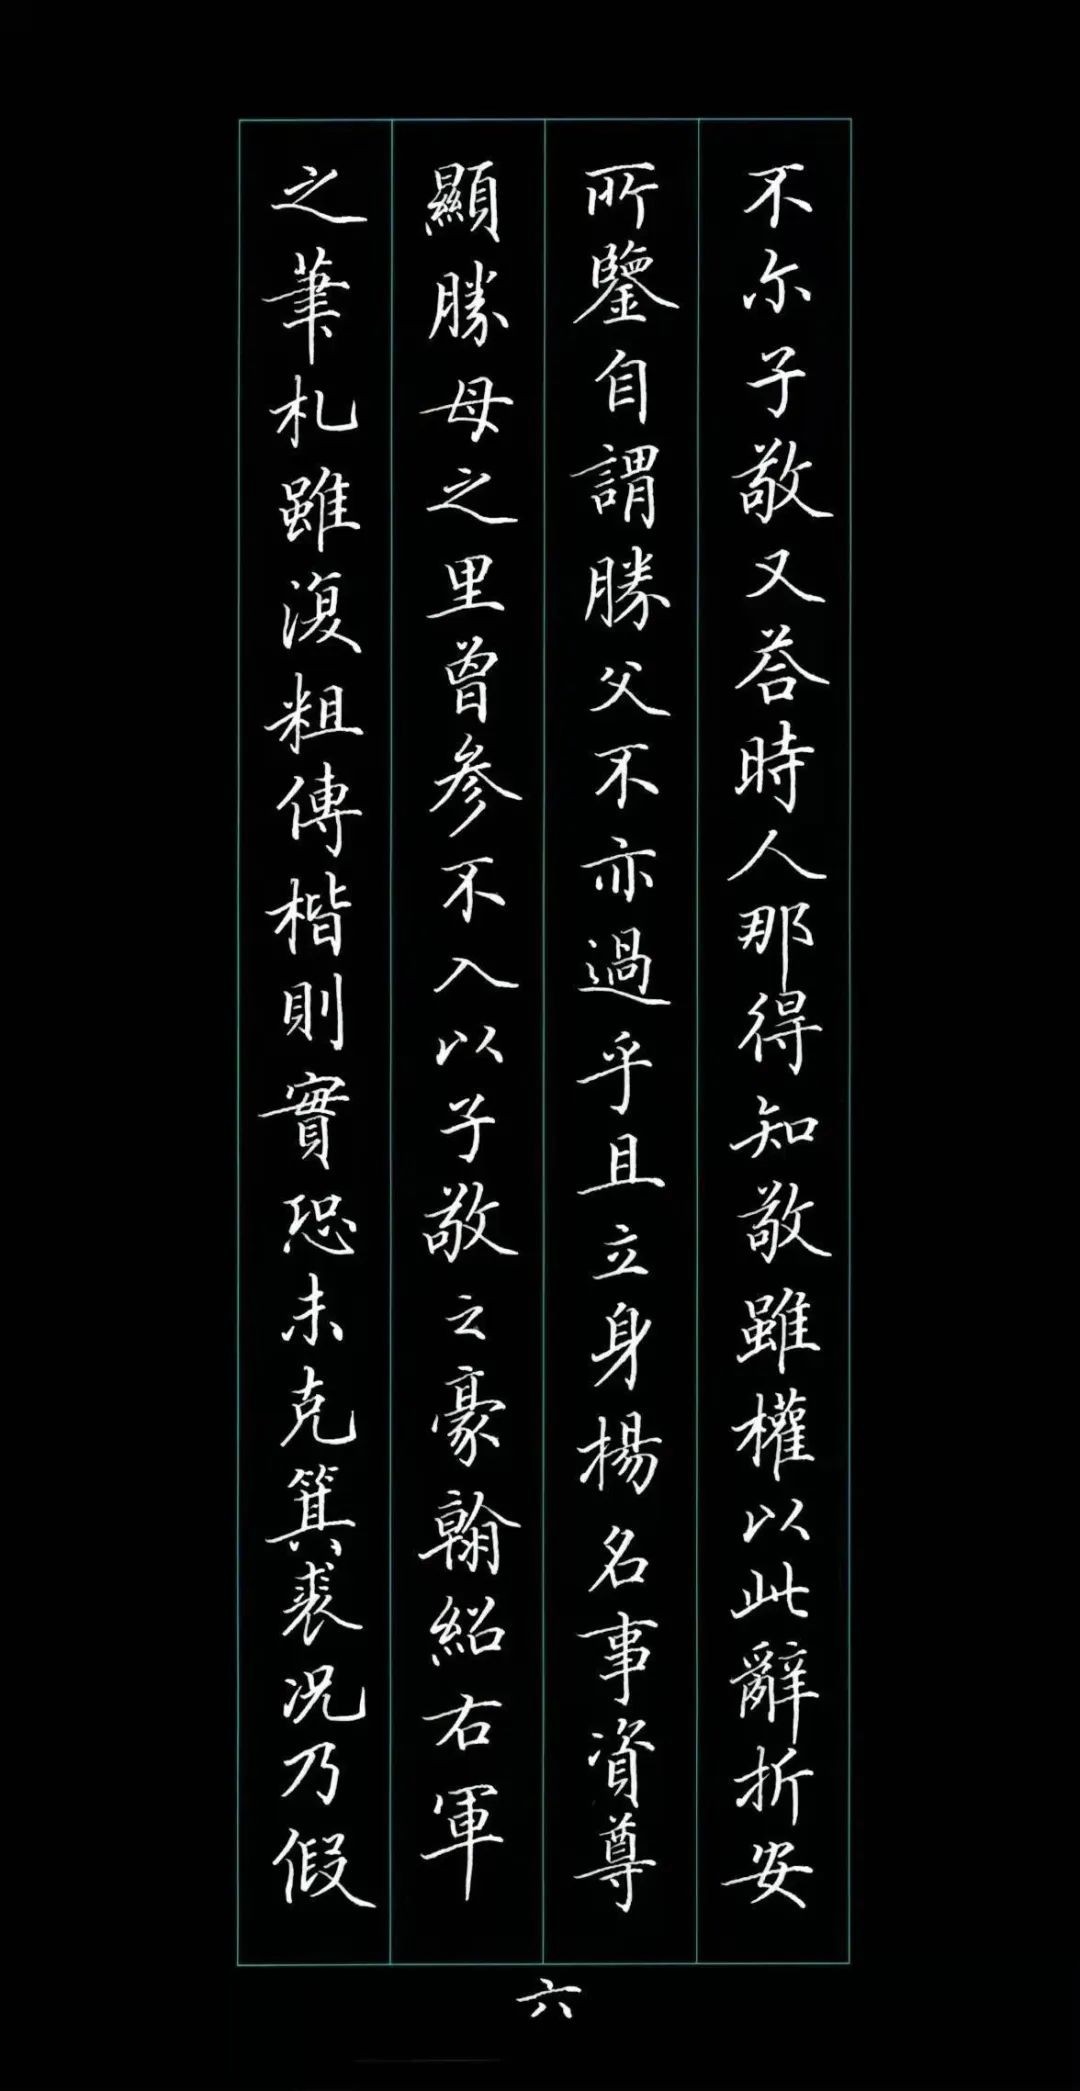 不尔子敬又荅時人那得知敬雖權以此辭折安
所鑒自謂勝父不亦過乎且立身楊名事資尊
顯勝母之里曾參不入以子敬之豪翰紹右軍
之筆札雖復粗傳楷則實恐未克箕裘況乃假
六